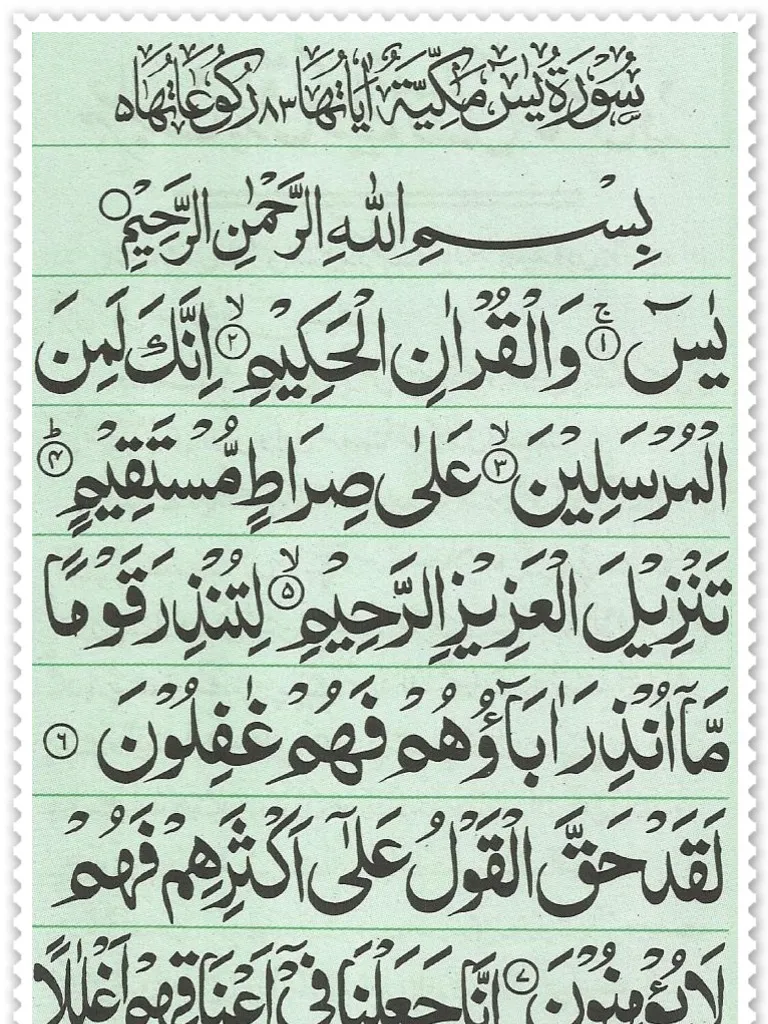 سُوْرَةُ يٰسٓ مَكِّيَّةٌ اٰيَاتُهَا ٨٣ رُكُوْعَاتُهَا ٥
بِسْمِ اللّٰهِ الرَّحْمٰنِ الرَّحِيْمِ ○
يٰسٓ ۚ﴿١﴾ وَالْقُرْاٰنِ الْحَكِيْمِ ۙ﴿٢﴾ اِنَّكَ لَمِنَ
الْمُرْسَلِيْنَ ۙ﴿٣﴾ عَلٰى صِرَاطٍ مُّسْتَقِيْمٍ ؕ﴿۴﴾
تَنْزِيْلَ الْعَزِيْزِ الرَّحِيْمِ ۙ﴿۵﴾ لِتُنْذِرَ قَوْمًا
مَّاۤ اُنْذِرَ اٰبَآؤُهُمْ فَهُمْ غٰفِلُوْنَ ﴿٦﴾
لَقَدْ حَقَّ الْقَوْلُ عَلٰۤى اَكْثَرِهِمْ فَهُمْ
لَا يُؤْمِنُوْنَ ﴿٧﴾ اِنَّا جَعَلْنَا فِيْۤ اَعْنَاقِهِمْ اَغْلٰلًا